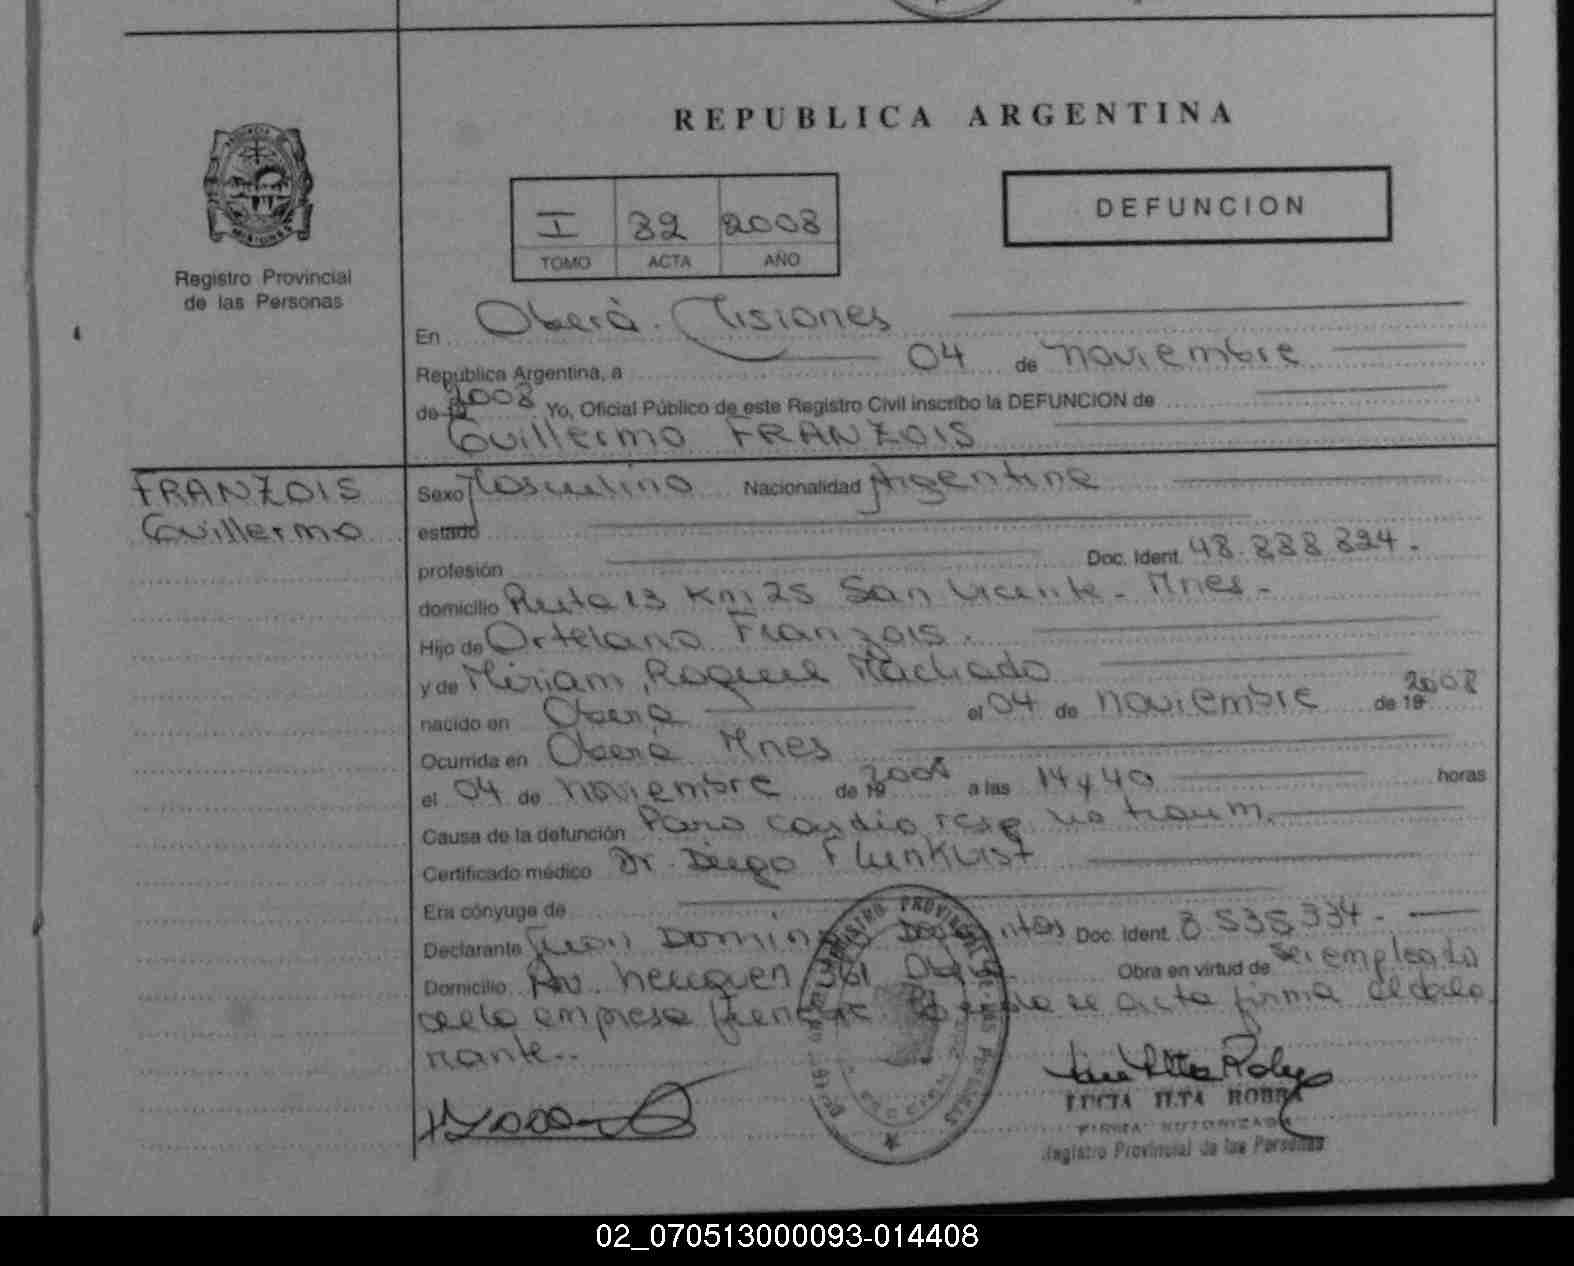 REPUBLICA ARGENTINA
Registro Provincial
de las Personas
I 32 2008
TOMO ACTA AÑO
DEFUNCION
En Oberá. Misiones
República Argentina, a 04 de noviembre
de 19 2008 Yo, Oficial Público de este Registro Civil inscribo la DEFUNCION de
Guillermo FRANZOIS
FRANZOIS
Guillermo
Sexo Masculino Nacionalidad Argentina
estado
profesión Doc. Ident. 48.838.324.
domicilio Ruta 13 Km 25 San Vicente - Mnes -
Hijo de Ortelano Franzois.
y de Miriam, Raquel Machado
nacido en Oberá el 04 de noviembre de 19 2008
Ocurrida en Oberá Mnes
el 04 de noviembre de 19 2008 a las 14 y 40 horas
Causa de la defunción Paro cardio resp no traum.
Certificado médico Dr. Diego
Era cónyuge de
Declarante Juan Doming Doc. Ident. 8.535.334. -
Domicilio Av. neuquen 361 Obra en virtud de ser empleado
de la empresa acta firma el decla
rante..
REGISTRO PROVINCIAL DE LAS PERSONAS
LUCIA ILTA
FIRMA AUTORIZADA
Registro Provincial de las Personas
02_070513000093-014408